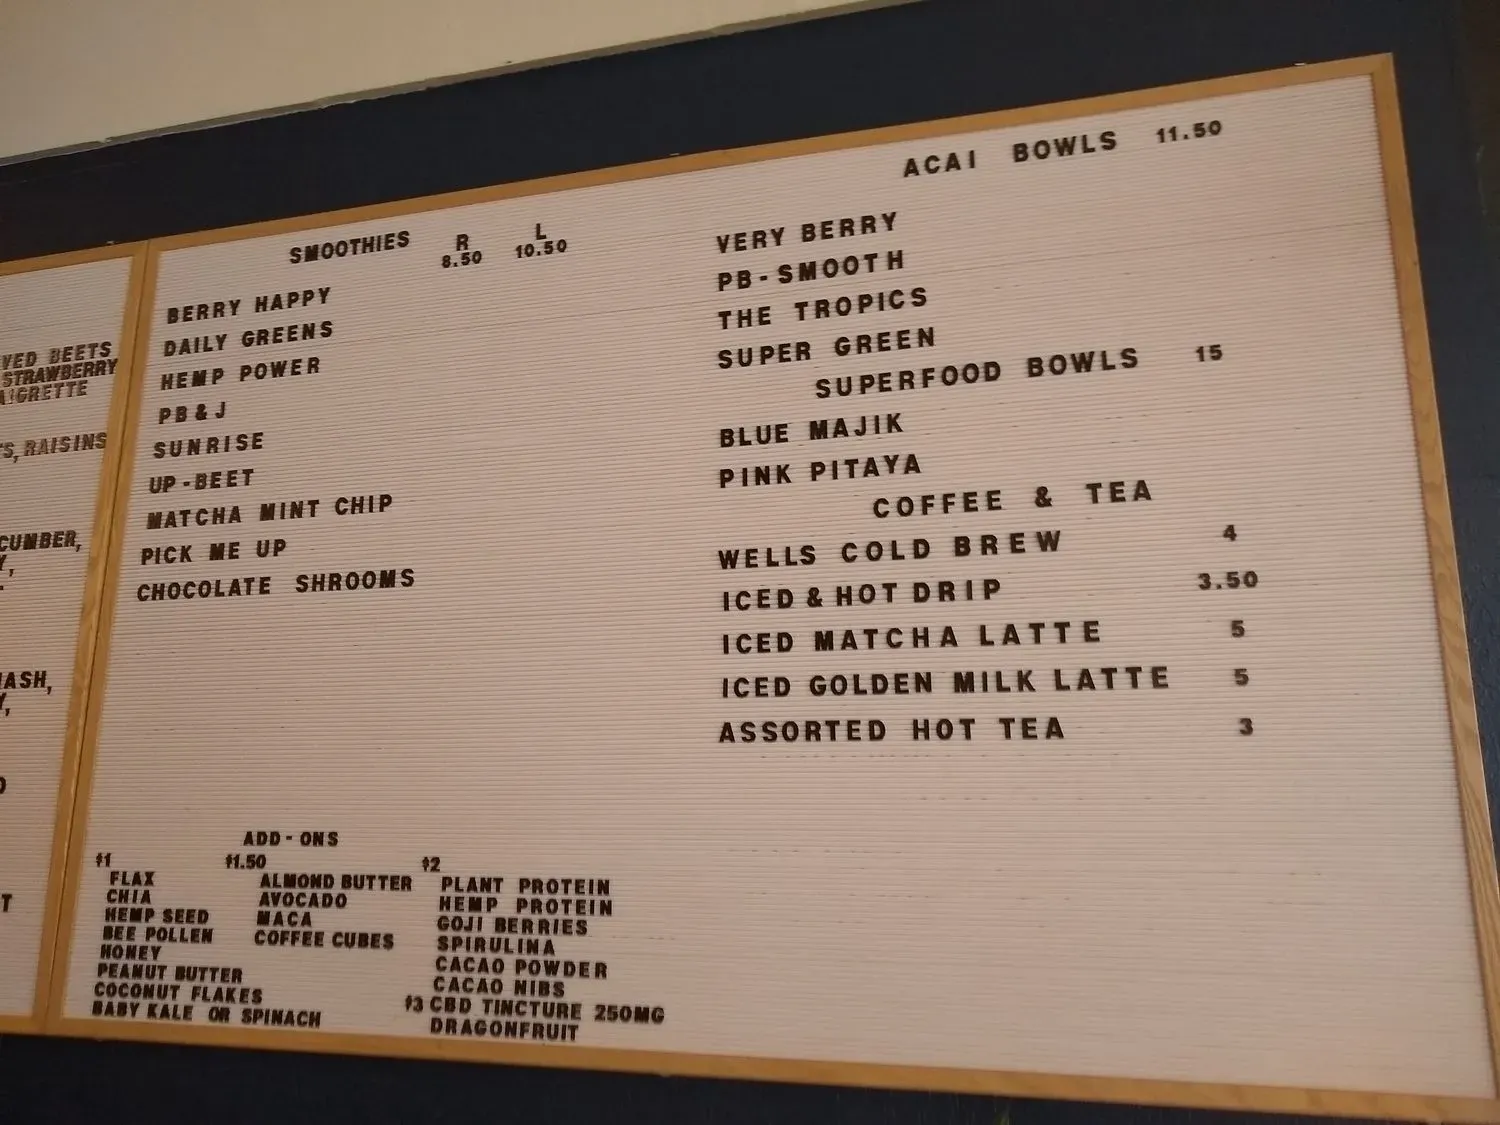 VED BEETS
STRAWBERRY
RAISINS
CUMBER,
SMOOTHIES R L
8.50 10.50
BERRY HAPPY
DAILY GREENS
HEMP POWER
PB&J
SUNRISE
UP-BEET
MATCHA MINT CHIP
PICK ME UP
CHOCOLATE SHROOMS
ADD-ONS
$1
FLAX
CHIA
HEMP SEED
BEE POLLEN
HONEY
PEANUT BUTTER
COCONUT FLAKES
BABY KALE OR SPINACH
$1.50
ALMOND BUTTER
AVOCADO
MACA
COFFEE CUBES
$2
PLANT PROTEIN
HEMP PROTEIN
GOJI BERRIES
SPIRULINA
CACAO POWDER
CACAO NIBS
$3 CBD TINCTURE 250MG
DRAGONFRUIT
ACAI BOWLS 11.50
VERY BERRY
PB-SMOOTH
THE TROPICS
SUPER GREEN
SUPERFOOD BOWLS 15
BLUE MAJIK
PINK PITAYA
COFFEE & TEA
WELLS COLD BREW 4
ICED & HOT DRIP 3.50
ICED MATCHA LATTE 5
ICED GOLDEN MILK LATTE 5
ASSORTED HOT TEA 3